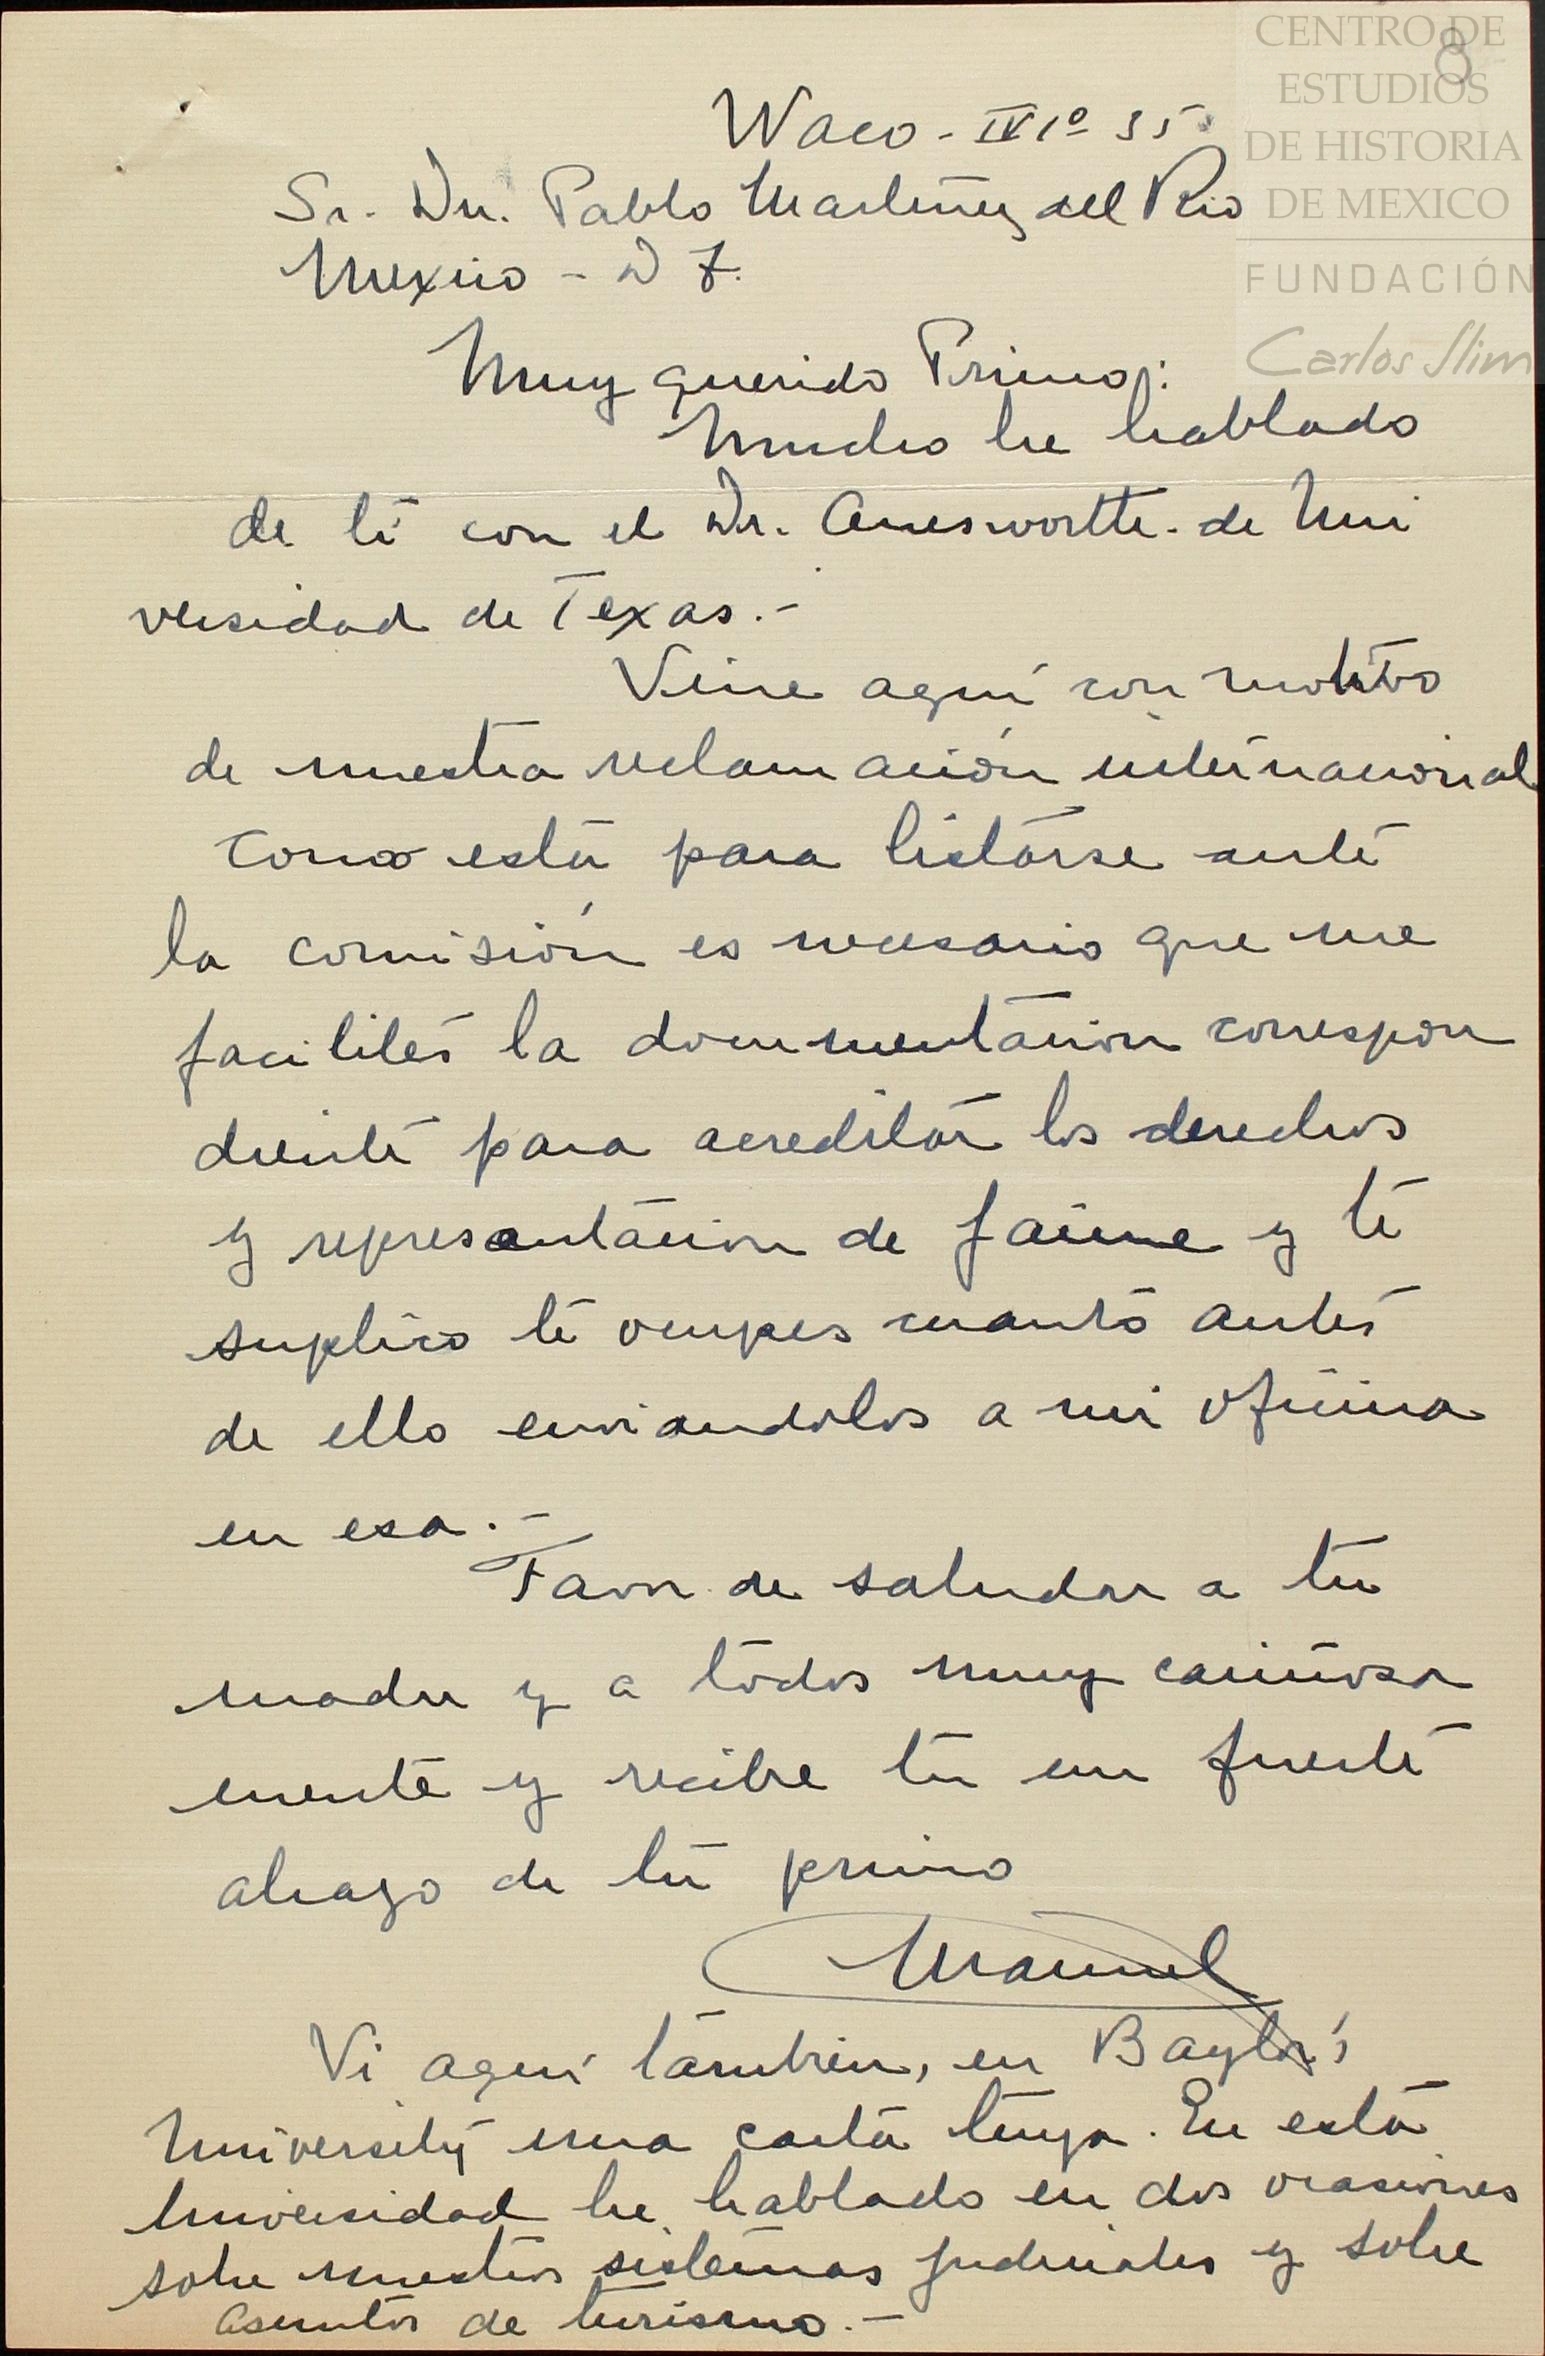 CENTRO DE
ESTUDIOS
DE HISTORIA
DE MEXICO
FUNDACIÓN
Carlos Slim
8
Waco - IV 1º 35
Sr. Dn. Pablo Martinez del Rio
Mexico - D F.
Muy querido Primo:
Mucho he hablado
de ti con el Dr. de Uni
versidad de Texas.-
Vine aquí con motivo
de nuestra reclamación internacional
como está para listarse ante
la comisión es necesario que me
facilites la documentacion correspon
diente para acreditar los derechos
y representacion de Jaime y te
suplico te ocupes cuanto antes
de ello enviandolos a mi oficina
en esa.-
Favor de saludar a tu
madre y a todos muy cariñosa
mente y recibe tu un fuerte
abrazo de tu primo
Manuel
Vi aquí tambien, en Baylor's
University una carta tuya. En esta
Universidad he hablado en dos ocasiones
sobre nuestros sistemas judiciales y sobre
asuntos de turismo.-